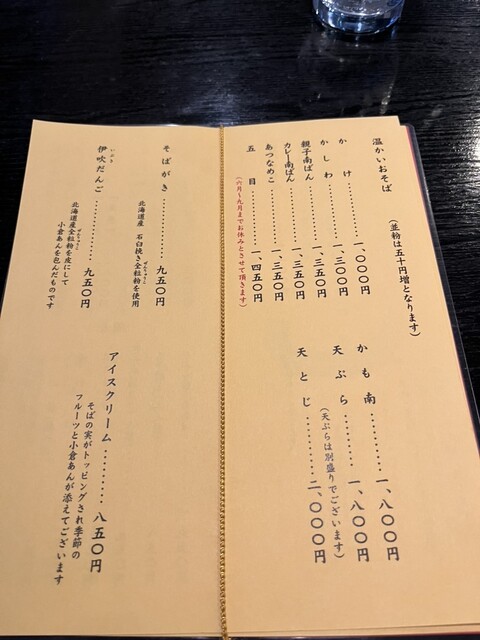 温かいおそば　（並粉は五十円増となります）
かけ………一、〇〇〇円
かしわ………一、三〇〇円
親子南ばん………一、三五〇円
カレー南ばん………一、三五〇円
あつなめこ………一、三五〇円
五目………一、四五〇円
（六月～九月までお休みとさせて頂きます）
かも南………一、八〇〇円
天ぷら………一、八〇〇円
（天ぷらは別盛りでございます）
天とじ………二、〇〇〇円
そばがき………九五〇円
北海道産　石臼挽き全粒粉を使用
ぜんりゅうこ
いぶき
伊吹だんご………九五〇円
北海道産全粒粉を皮にして
ぜんりゅうこ
小倉あんを包んだものです
アイスクリーム………八五〇円
そばの実がトッピングされ季節の
フルーツと小倉あんが添えてございます